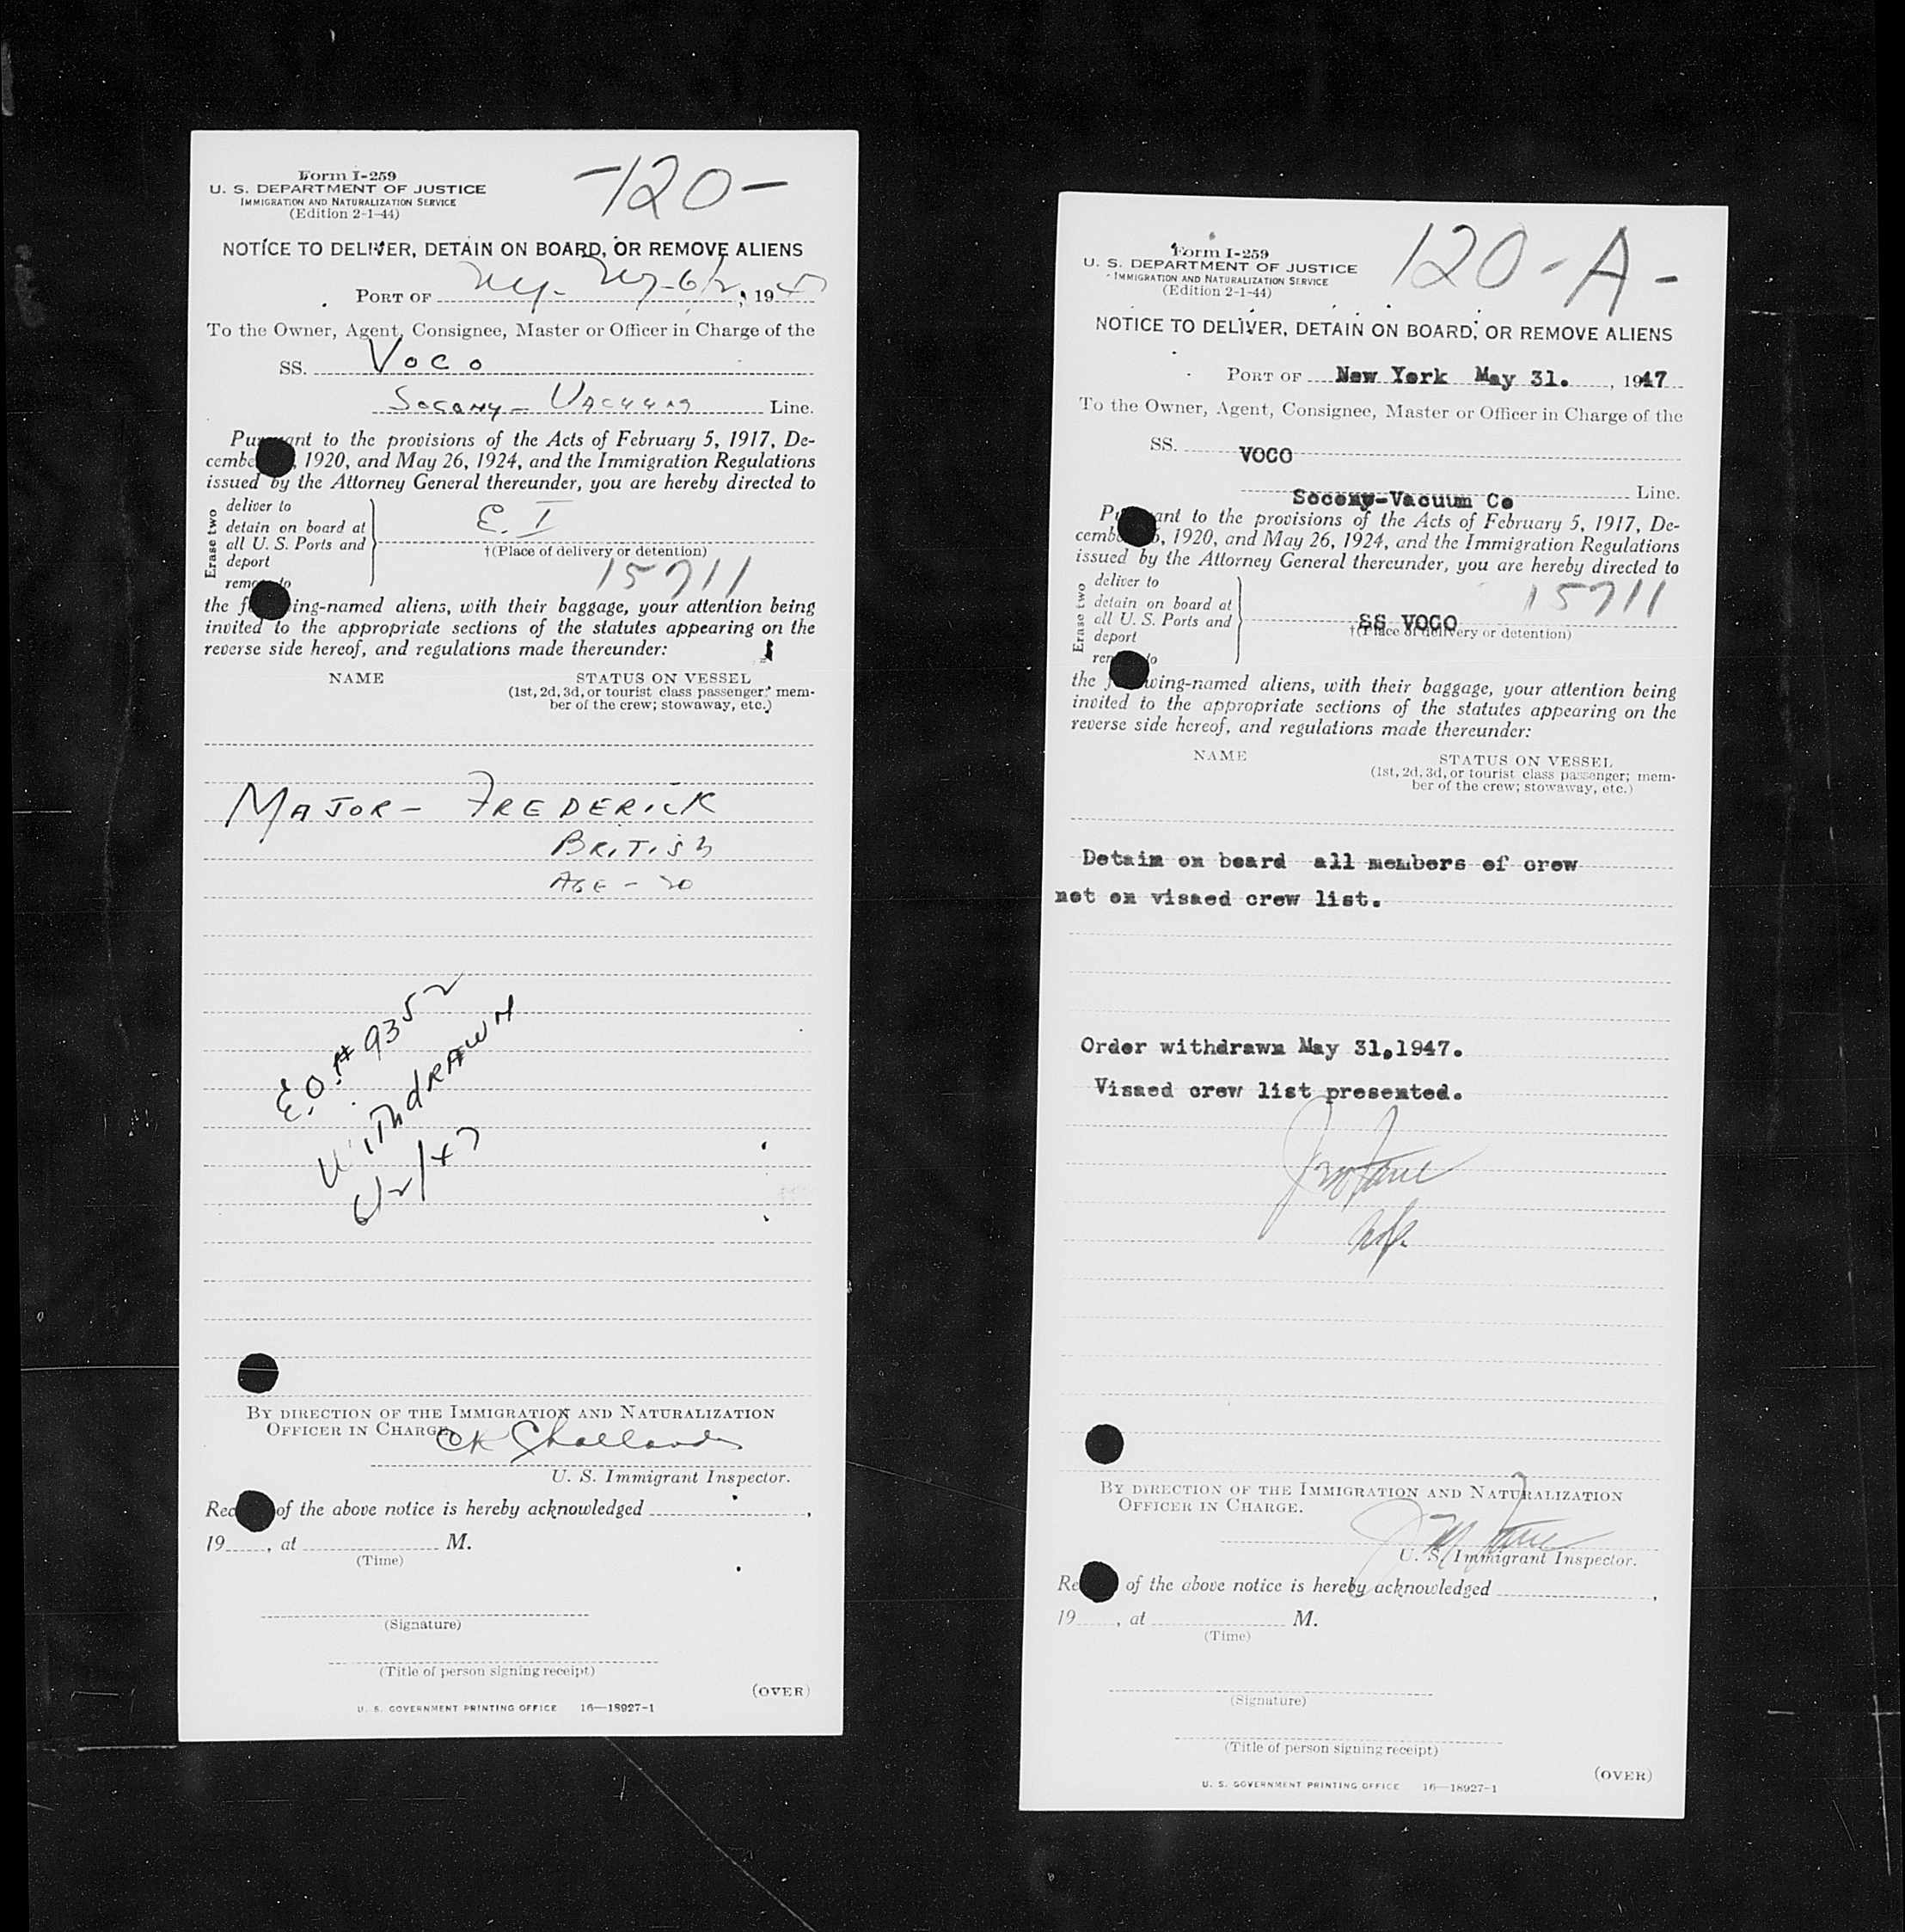 -120-
Form I-259
U. S. DEPARTMENT OF JUSTICE
IMMIGRATION AND NATURALIZATION SERVICE
(Edition 2-1-44)
NOTICE TO DELIVER, DETAIN ON BOARD, OR REMOVE ALIENS
PORT OF N.Y. N.Y. 6/2, 1947
To the Owner, Agent, Consignee, Master or Officer in Charge of the
SS. VOCO
Socony-Vacuum Line.
Pu ant to the provisions of the Acts of February 5, 1917, De-
cembe , 1920, and May 26, 1924, and the Immigration Regulations
issued by the Attorney General thereunder, you are hereby directed to
Erase two
deliver to
detain on board at
all U. S. Ports and
deport
remo to
E. I
†(Place of delivery or detention)
15711
the f ing-named aliens, with their baggage, your attention being
invited to the appropriate sections of the statutes appearing on the
reverse side hereof, and regulations made thereunder:
NAME STATUS ON VESSEL
(1st, 2d, 3d, or tourist class passenger; mem-
ber of the crew; stowaway, etc.)
MAJOR - FREDERICK
BRITISH
AGE - 20
E.O.# 9352
WITHDRAWN
6/2/47
BY DIRECTION OF THE IMMIGRATION AND NATURALIZATION
OFFICER IN CHARGE.
U. S. Immigrant Inspector.
Rec of the above notice is hereby acknowledged ,
19 , at M.
(Time)
(Signature)
(Title of person signing receipt)
(OVER)
U. S. GOVERNMENT PRINTING OFFICE 16—18927-1
120-A-
Form I-259
U. S. DEPARTMENT OF JUSTICE
IMMIGRATION AND NATURALIZATION SERVICE
(Edition 2-1-44)
NOTICE TO DELIVER, DETAIN ON BOARD, OR REMOVE ALIENS
PORT OF New York May 31. , 1947
To the Owner, Agent, Consignee, Master or Officer in Charge of the
SS. VOCO
Socony-Vacuum Co Line.
Pu ant to the provisions of the Acts of February 5, 1917, De-
cemb 5, 1920, and May 26, 1924, and the Immigration Regulations
issued by the Attorney General thereunder, you are hereby directed to
Erase two
deliver to
detain on board at
all U. S. Ports and
deport
rem to
15711
SS VOCO
†(Place of delivery or detention)
the f wing-named aliens, with their baggage, your attention being
invited to the appropriate sections of the statutes appearing on the
reverse side hereof, and regulations made thereunder:
NAME STATUS ON VESSEL
(1st, 2d, 3d, or tourist class passenger; mem-
ber of the crew; stowaway, etc.)
Detain on board all members of crew
not on visaed crew list.
Order withdrawn May 31,1947.
Visaed crew list presented.
BY DIRECTION OF THE IMMIGRATION AND NATURALIZATION
OFFICER IN CHARGE.
U. S. Immigrant Inspector.
Re of the above notice is hereby acknowledged ,
19 , at M.
(Time)
(Signature)
(Title of person signing receipt)
(OVER)
U. S. GOVERNMENT PRINTING OFFICE 16—18927-1